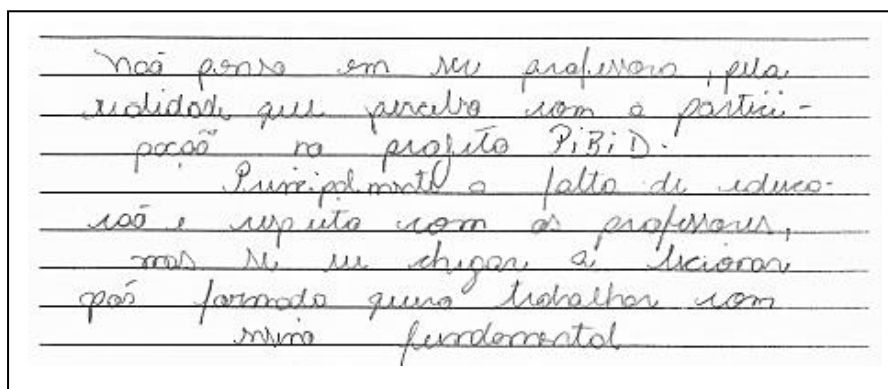 Não penso em ser professora, pela
realidade que percebo com a partici-
pação no projeto PiBiD.
Principalmente a falta de educa-
ção e respeito com os professores,
mas se eu chegar a lecionar
pós formada quero trabalhar com
ensino fundamental